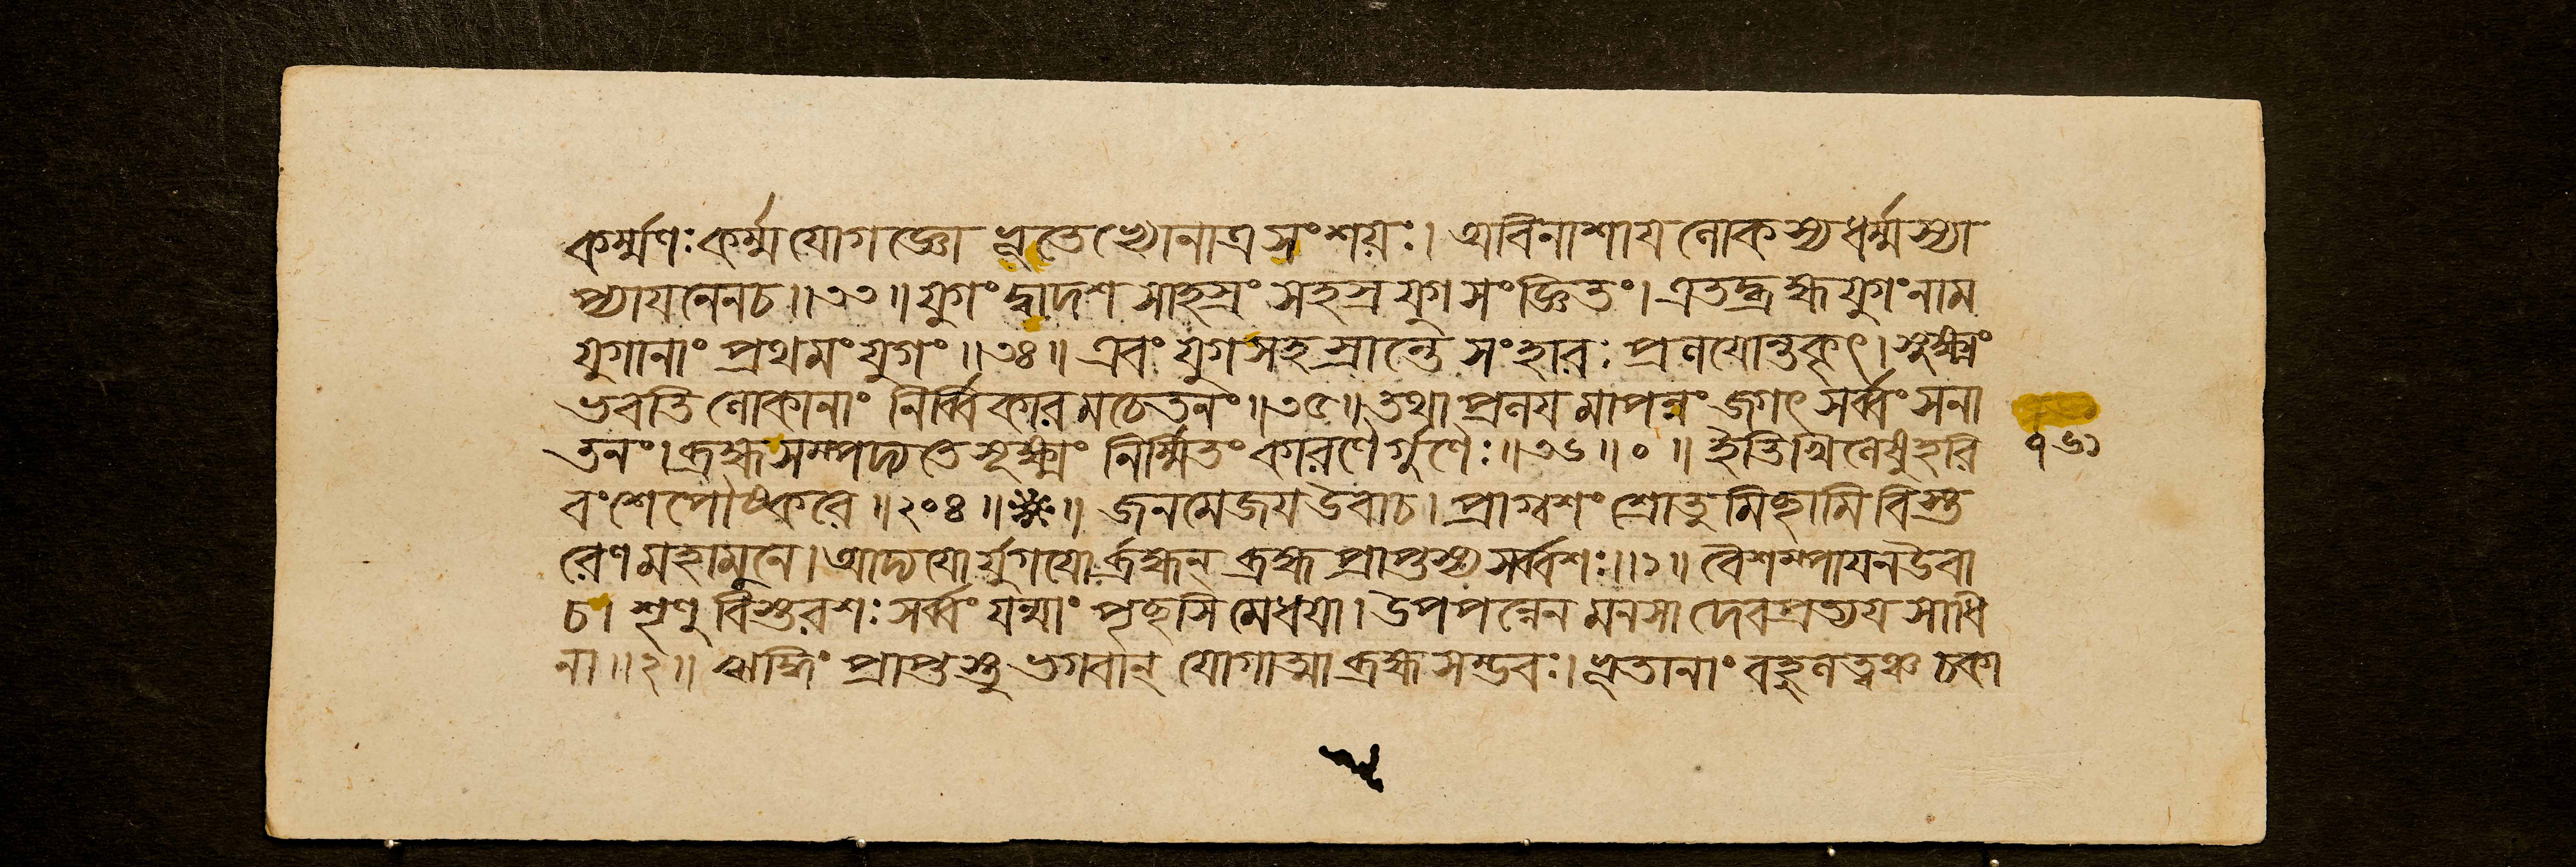 কর্ম্মণঃ কর্ম্মযোগজ্ঞো ধ্রূতেখ্যোনাত্র সংশয়ঃ। অবিনাশায লোকস্য ধর্ম্মস্যা
প্যাযনেন চ॥৩৩॥ যুগং দ্বাদশসাহস্রং সহস্রযুগসংজ্ঞিতং। এতদ্ব্রহ্মযুগং নাম
যুগানাং প্রথমং যুগং॥৩৪॥ এবং যুগসহস্রান্তে সংহারঃ প্রলযোন্তকৃৎ। সূক্ষ্মং
ভবতি লোকানাং নির্ব্বিকারমচেতনং॥৩৫॥ তথা প্রলযমাপন্নং জগৎ সর্ব্বং সনা
তনং। ব্রহ্ম সম্পদ্যতে সূক্ষ্মং নির্ম্মিতং কারণৈর্গুণৈঃ॥৩৬॥০॥ ইতি খিলেষু হরি
বংশে পৌষ্করে॥২০৪॥ জনমেজয উবাচ। প্রাগ্বংশং শ্রোতুমিছামি বিস্ত
রেণ মহামুনে। আদ্যযোর্যুগযোর্ব্রহ্মন্ ব্রহ্মপ্রাপ্তস্য সর্ব্বশঃ॥১॥ বৈশম্পাযন উবা
চ। শৃণু বিস্তরশঃ সর্ব্বং যন্মাং পৃছসি মেধযা। উপপন্নেন মনসা দেবপ্রত্যযসাধি
না॥২॥ ঋদ্ধিং প্রাপ্তস্তু ভগবান্ যোগাত্মা ব্রহ্মসম্ভবঃ। ভূতানাং বহুলত্বঞ্চ চকা
১৬১